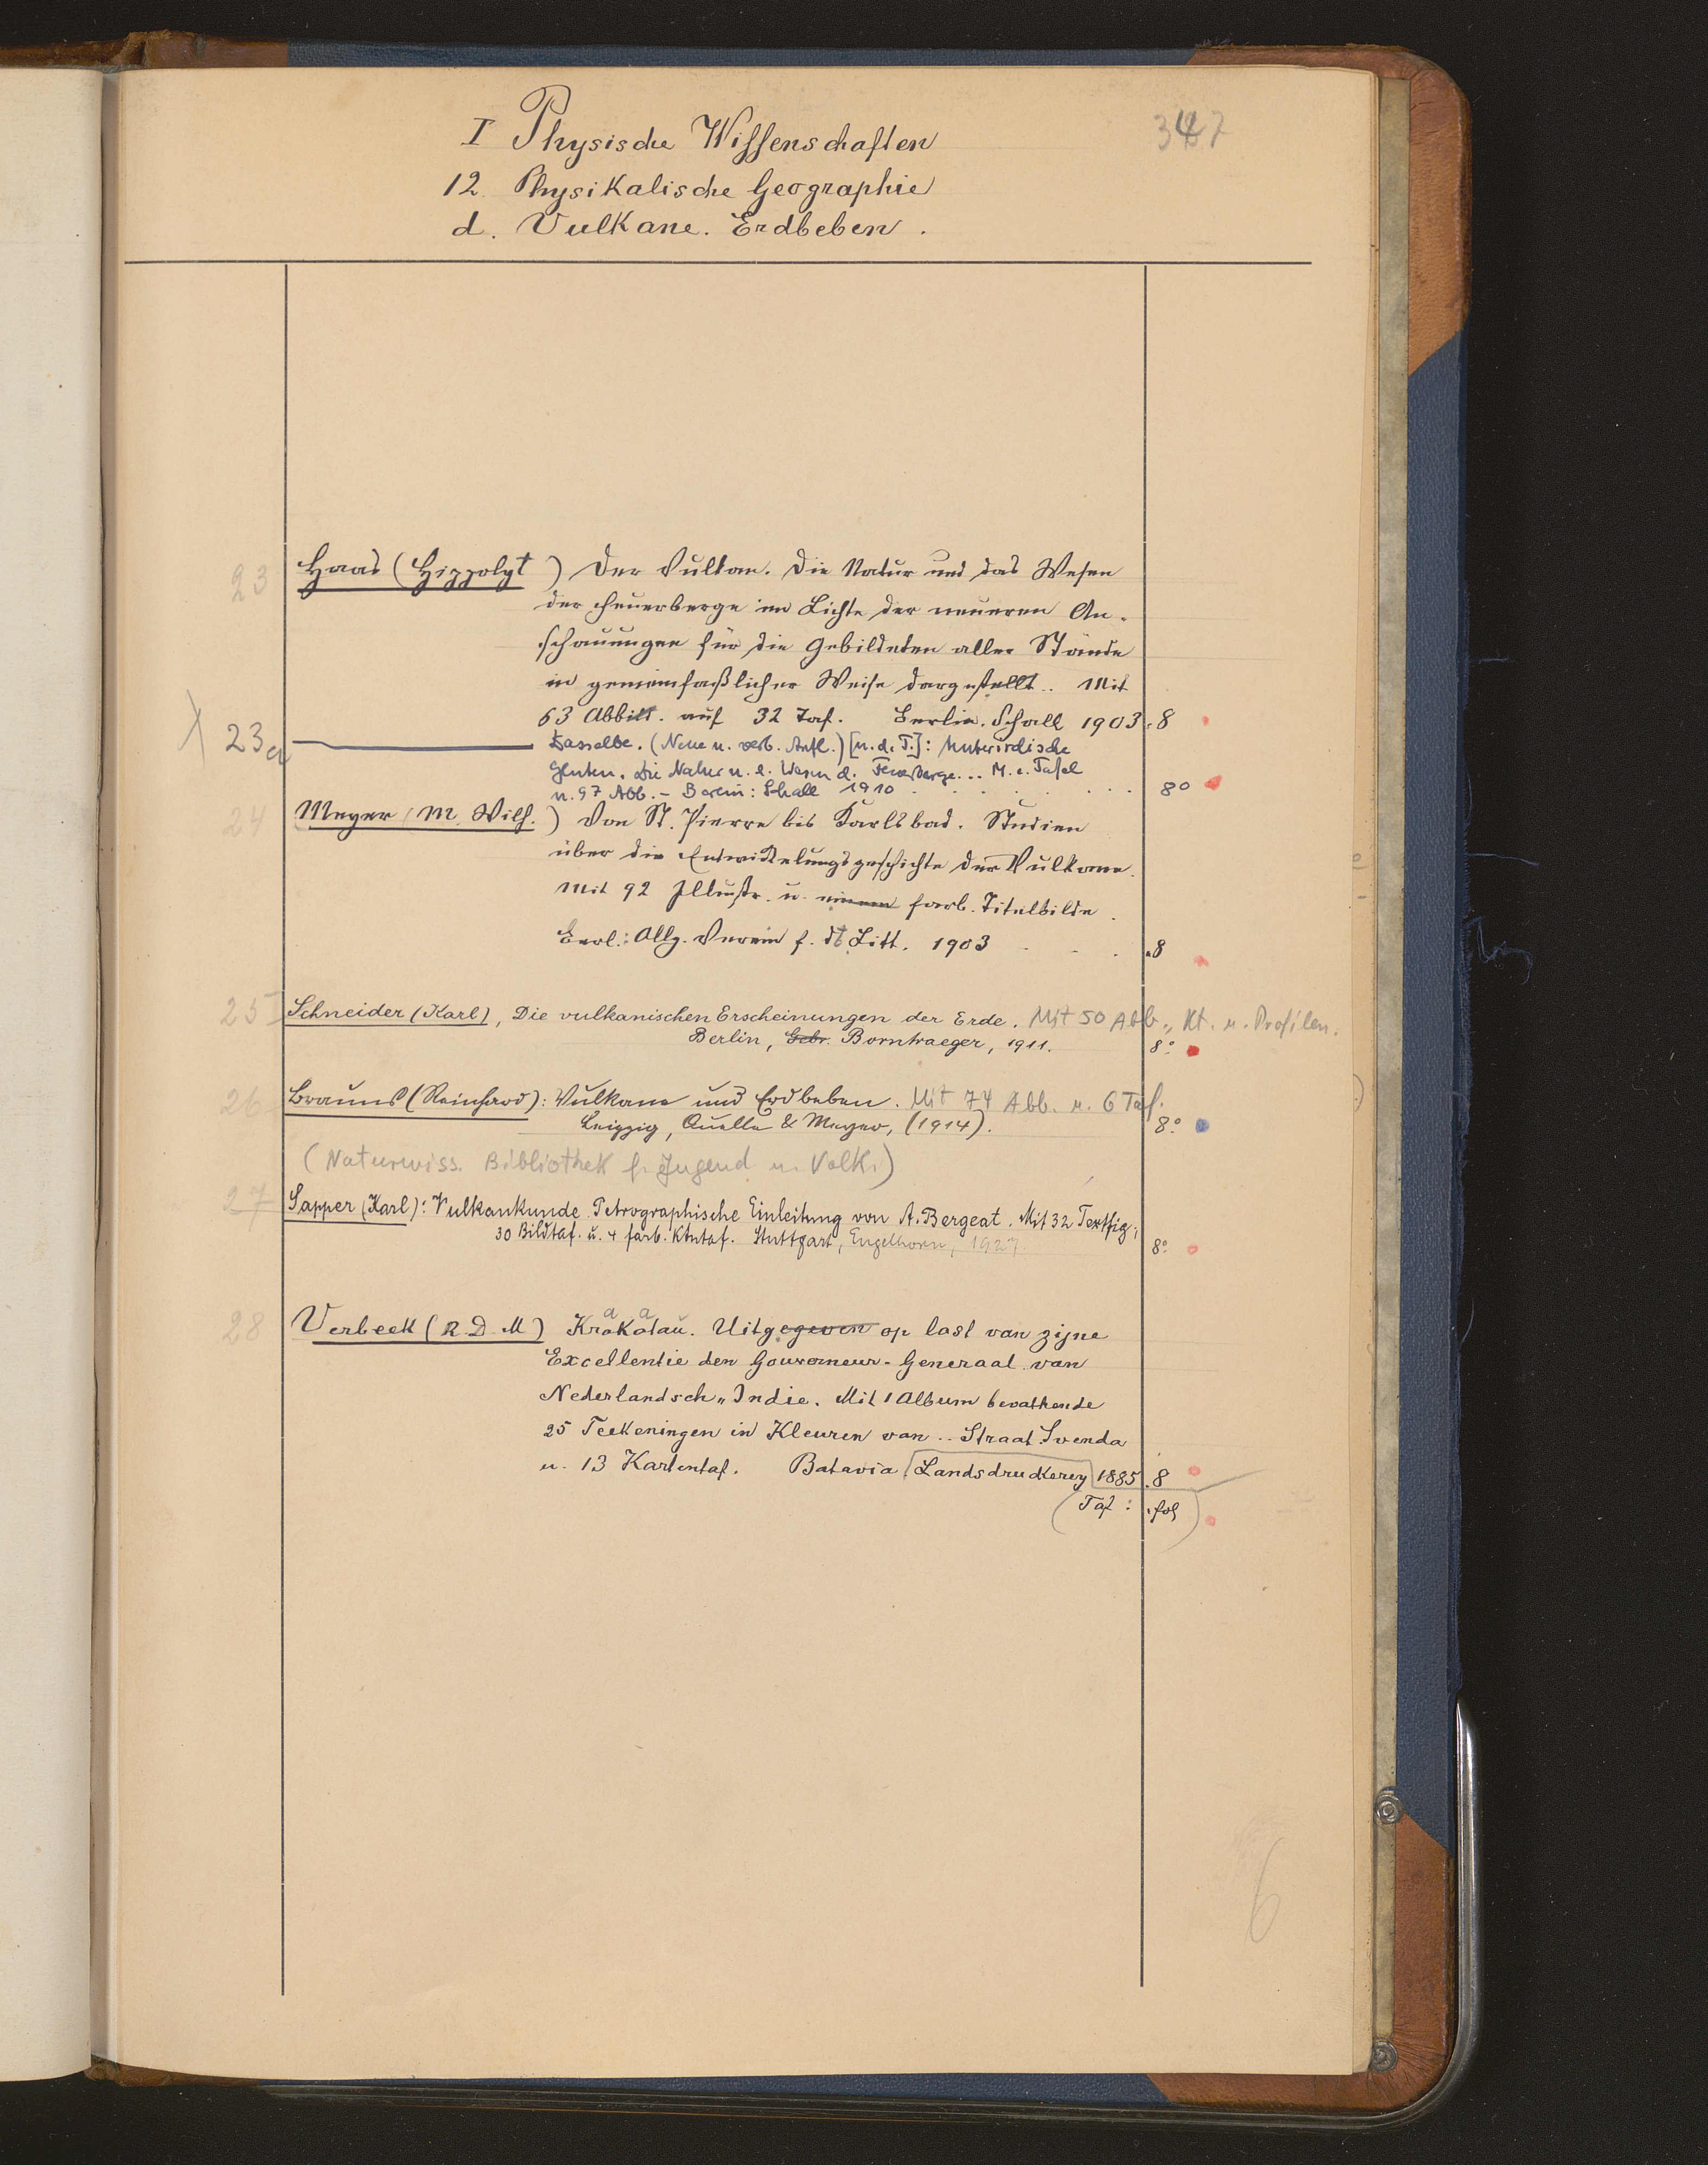 347
I Physische Wissenschaften
12. Physikalische Geographie
d. Vulkane. Erdbeben.
23 Haas (Hippolyt) Der Vulkan. Die Natur und das Wesen
der Feuerberge im Lichte der neueren An-
schauungen für die Gebildeten aller Stände
in gemeinfaßlicher Weise dargestellt.. Mit
63 Abbild. auf 32 Taf. Berlin. Schall 1903. 8
23a Dasselbe. (Neue u. verb. Aufl.) [u. d. T.]: Unterirdische
Gluten. Die Natur u. d. Wesen d. Feuerberge... M. e. Tafel
u. 97 Abb. - Berlin: Schall 1910 8°
24 Meyer (M. Wilh.) Von St. Pierre bis Karlsbad. Studien
über die Entwickelungsgeschichte der Vulkane.
Mit 92 Illustr. u. einem farb. Titelbilde.
Berl.: Allg. Verein f. dt. Litt. 1903 8
25 Schneider (Karl), Die vulkanischen Erscheinungen der Erde. Mit 50 Abb., Kt. u. Profilen.
Berlin, Gebr. Borntraeger, 1911. 8°
26 Brauns (Reinhard): Vulkane und Erdbeben. Mit 74 Abb. u. 6 Taf.
Leipzig, Quelle & Meyer, (1914). 8°
(Naturwiss. Bibliothek f. Jugend u. Volk.)
27 Sapper (Karl): Vulkankunde. Petrographische Einleitung von A. Bergeat. Mit 32 Textfig.,
30 Bildtaf. u. 4 farb. Ktntaf. Stuttgart, Engelhorn, 1927. 8°
28 Verbeek (R. D. M) Krakatau. Uitgegeven op last van zijne
Excellentie den Gouverneur-Generaal van
Nederlandsch-Indie. Mit 1 Album bevattende
25 Teekeningen in Kleuren van .. Straat Soenda
u. 13 Kartentaf. Batavia, Landsdrukkerey 1885. 8
(Taf: fol)
6